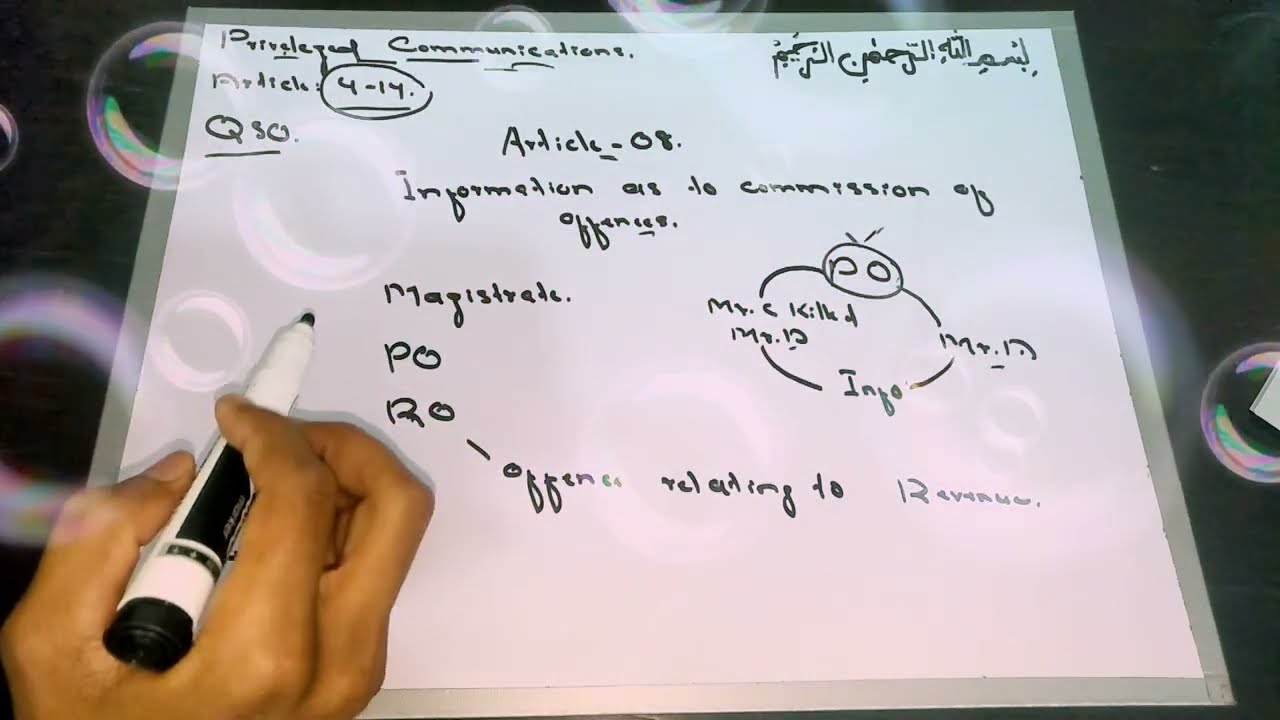 Priveleged Communications.
بِسْمِ اللّٰهِ الرَّحْمٰنِ الرَّحِيْمِ
Article: 4-14.
QSO.
Article-08.
Information as to commission of
offences.
PO
Magistrate.
Mr. C Killed
Mr. B
Mr. D
PO
Info
RO
offence relating to Revenue.